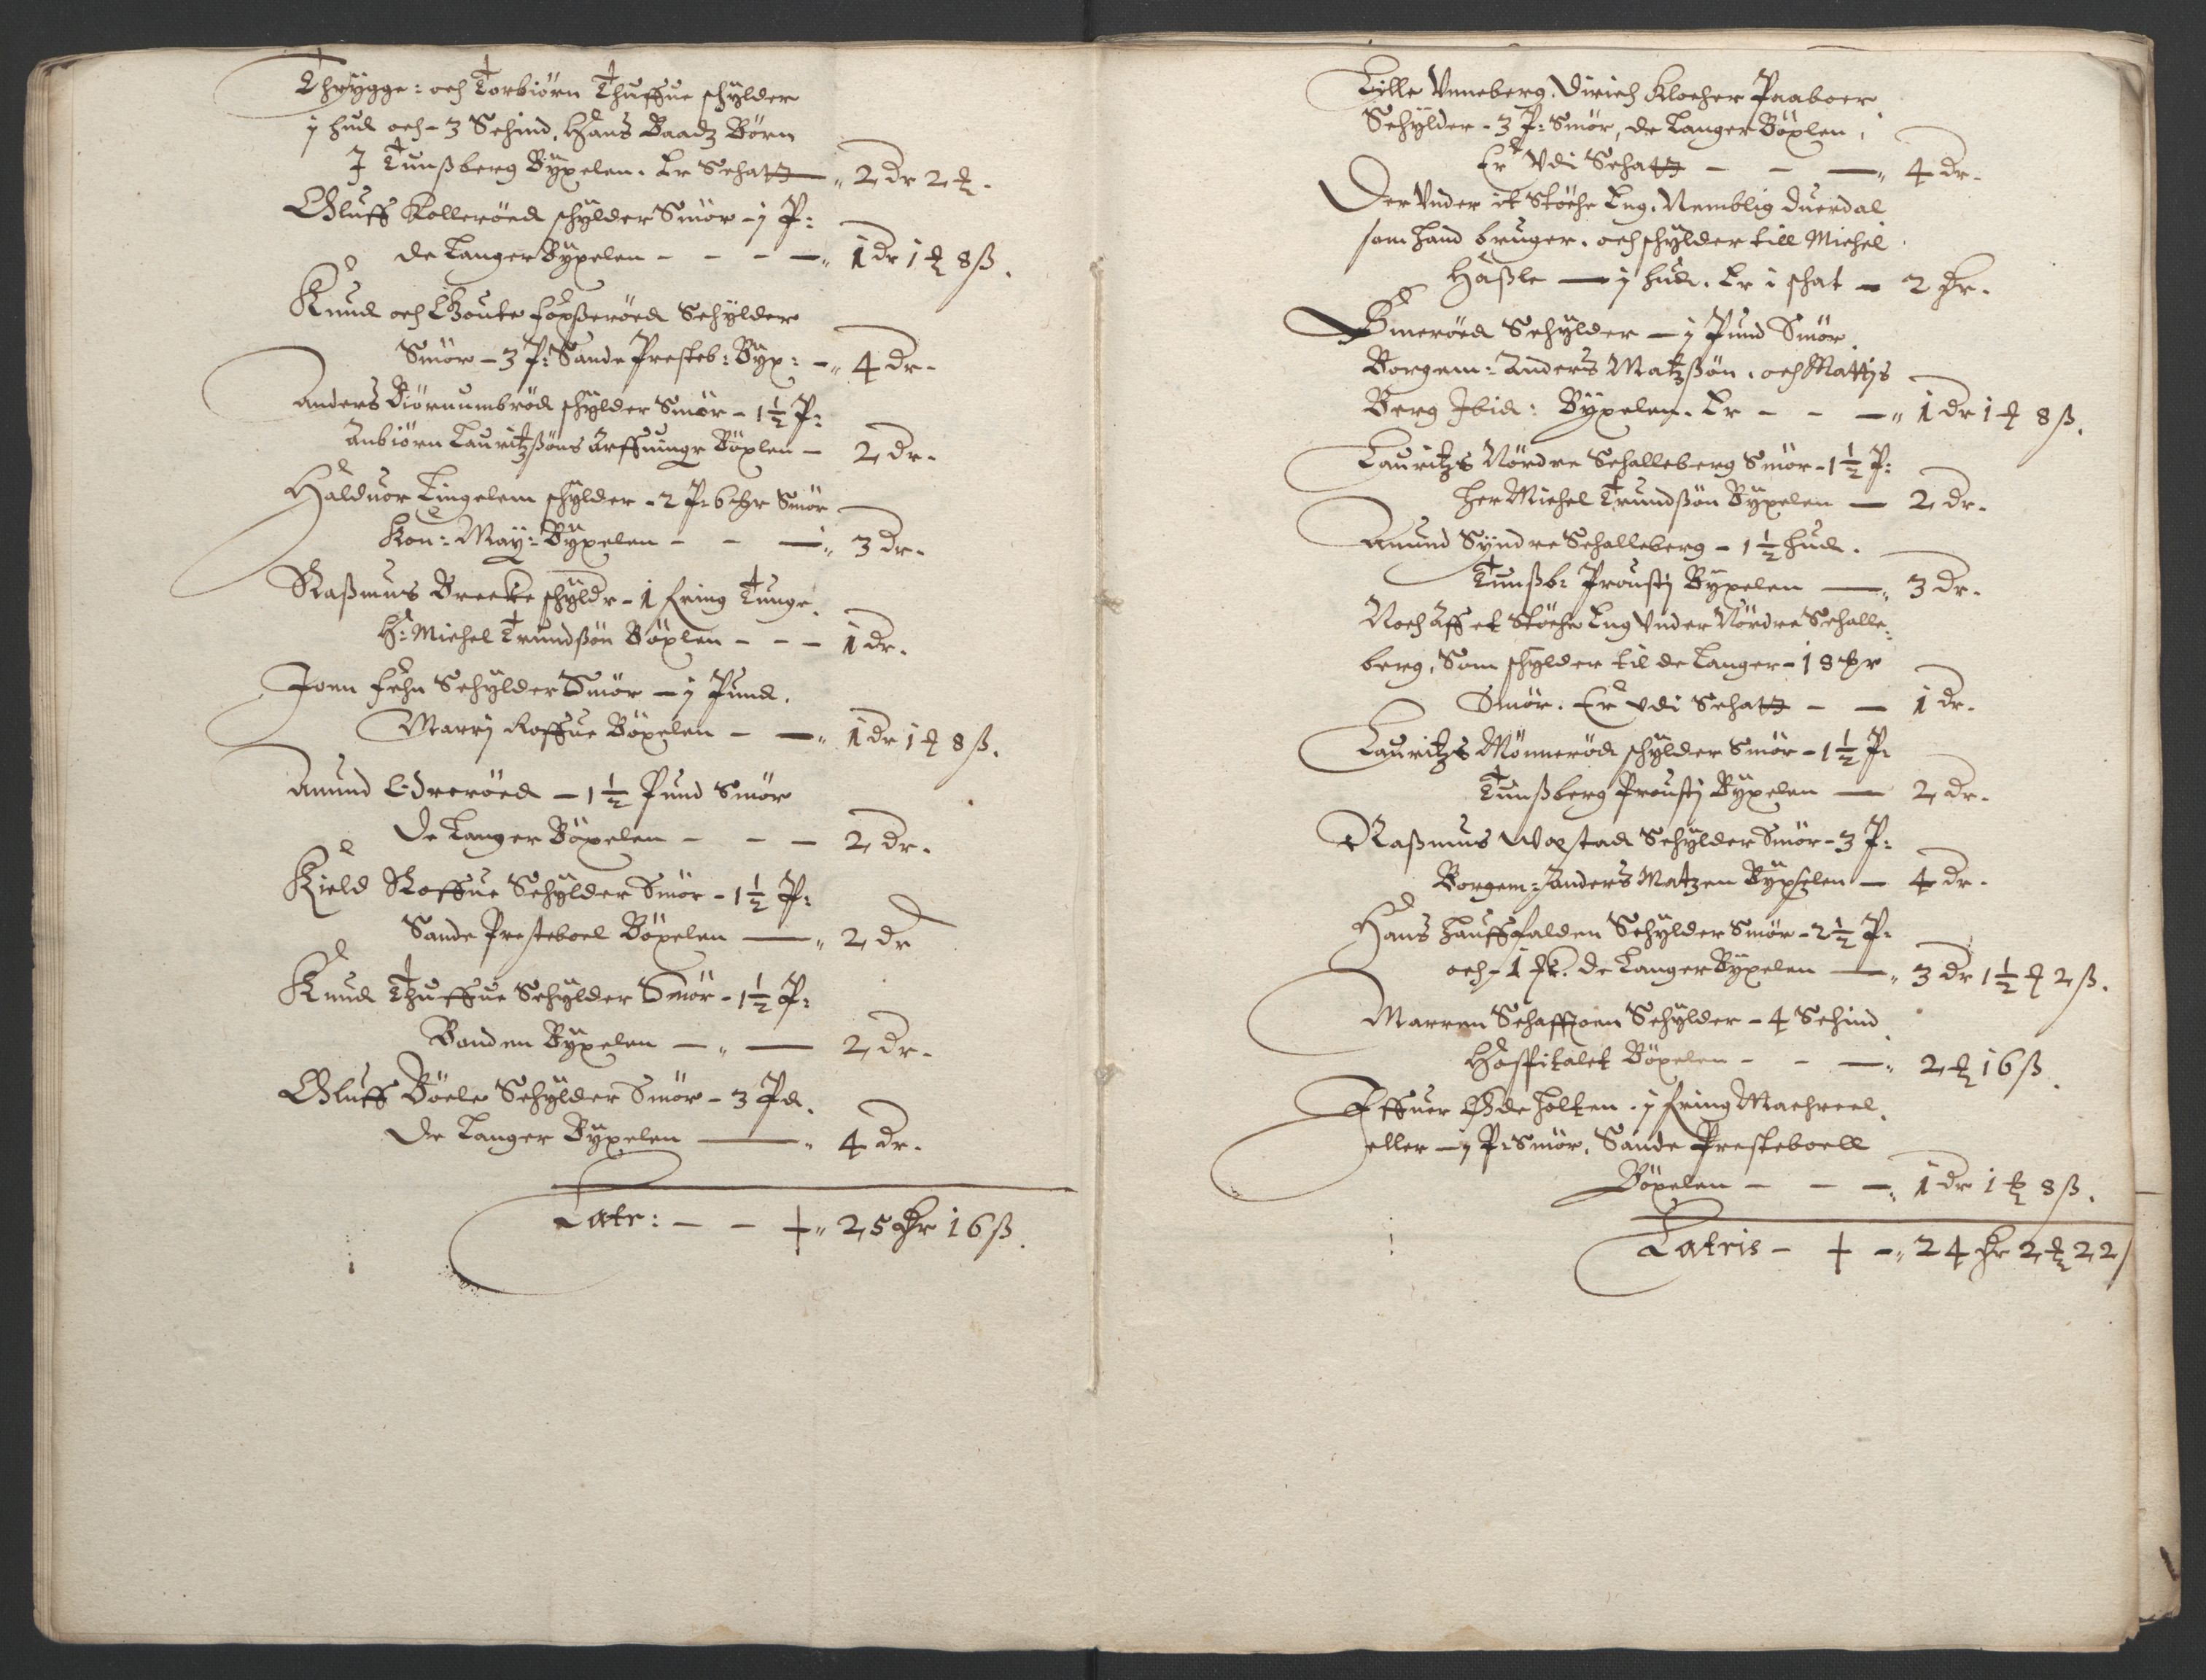 Thrygge: och Torbiörn Thuffue schylder
j hud och - 3 Schind, Hans Baadz Börn
J Tunßberg Byxelen. Er Schatt — 2 dr 2 ₰.
Olluff Kolleröed schylder Smör - j P:
de Langer Byxelen - - - — 1 dr 1 ₰ 8 ß.
Knud och Goute Foxßeröed Schylder
Smör - 3 P: Sande Presteb: Byx: — 4 dr.
Anders Biörnumbröd schylder Smör - 1½ P:
Anbiörn Lauritzßöns Arffuinge Böxlen — 2 dr.
Halduor Lingelem schylder - 2 P: 6 mr Smör
Kon: May: Byxelen - - — 3 dr.
Raßmus Brecke schyldr - 1 fring Tunge.
H: Michel Trundßön Böxlen - - - 1 dr.
Joen Fehn Schylder Smör — j Pund.
Marrj Roffue Böxelen - — 1 dr 1 ₰ 8 ß.
Amund Edreröed — 1½ Pund Smör
De Langer Böxelen - - — 2 dr.
Kield Roffue Schylder Smör - 1½ P:
Sande Presteboel Böxelen — 2 dr
Knud Thuffue Schylder Smör - 1½ P:
Bonden Byxelen — — 2 dr.
Olluff Böele Schylder Smör - 3 Pd.
De Langer Byxelen — 4 dr.
Latr: - - + 25 dr 16 ß.
Tille Vnneberg. Dirich Klocher Paaboer
Schylder - 3 P: Smör, de Langer Böxlen,
Er Vdi Schatt - - — 4 dr.
Der Vnder it Stöche Eng. Nemblig Duerdal
som hand bruger. och schylder till Michel
Haßle — j hud. Er i schat — 2 dr.
Gmeröed Schylder — j Pund Smör.
Borgem: Anders Matzßön. och Mattis
Berg Ibid: Byxelen. Er - - — 1 dr 1 ₰ 8 ß.
Lauritzs Nördre Schalleberg Smör - 1½ P:
her Michel Trundßön Byxelen — 2 dr.
Amund Syndre Schalleberg - 1½ hud.
Tunßb: Proustj Byxelen — 3 dr.
Noch Aff et Stöche Eng Vnder Nördre Schalle:
berg, Som schylder til de Langer - 18 mr
Smör. Er vdi Schatt - — 1 dr.
Lauritzs Mönneröd schylder Smör - 1½ P:
Tunßberg Proustj Byxelen — 2 dr.
Raßmus Woxstad Schylder Smör - 3 P:
Borgem: Anders Matzen Byxselen — 4 dr.
Hans Hauffsalden Schylder Smör - 2½ P:
och - 1 fk. de Langer Byxelen — 3 dr 1½ ₰ 2 ß.
Marren Schaffioen Schylder - 4 Schind
Hospitalet Böxelen - - — 2 ₰ 16 ß.
Effuer Ødeholten. j fring Maehreel.
eller — j P: Smör, Sande Presteboell
Böxelen - - — 1 dr 1 ₰ 8 ß.
Latris - + — 24 dr 2 ₰ 22